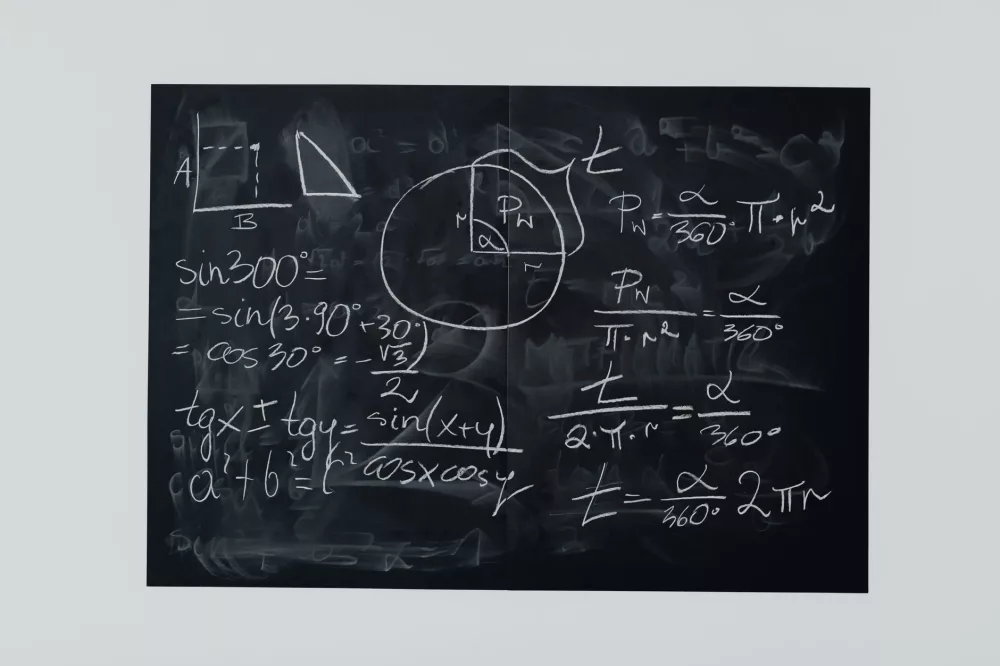 A
B
sin300°=
= sin(3·90°+30°)
= cos30° = -√3/2
tgx ± tgy = sin(x+y)/cosxcosy
a²+b²=c²
t
r
P_W
α
r
P_W = α/360° · π · r²
P_W/π·r² = α/360°
t/2·π·r = α/360°
t = α/360° 2πr